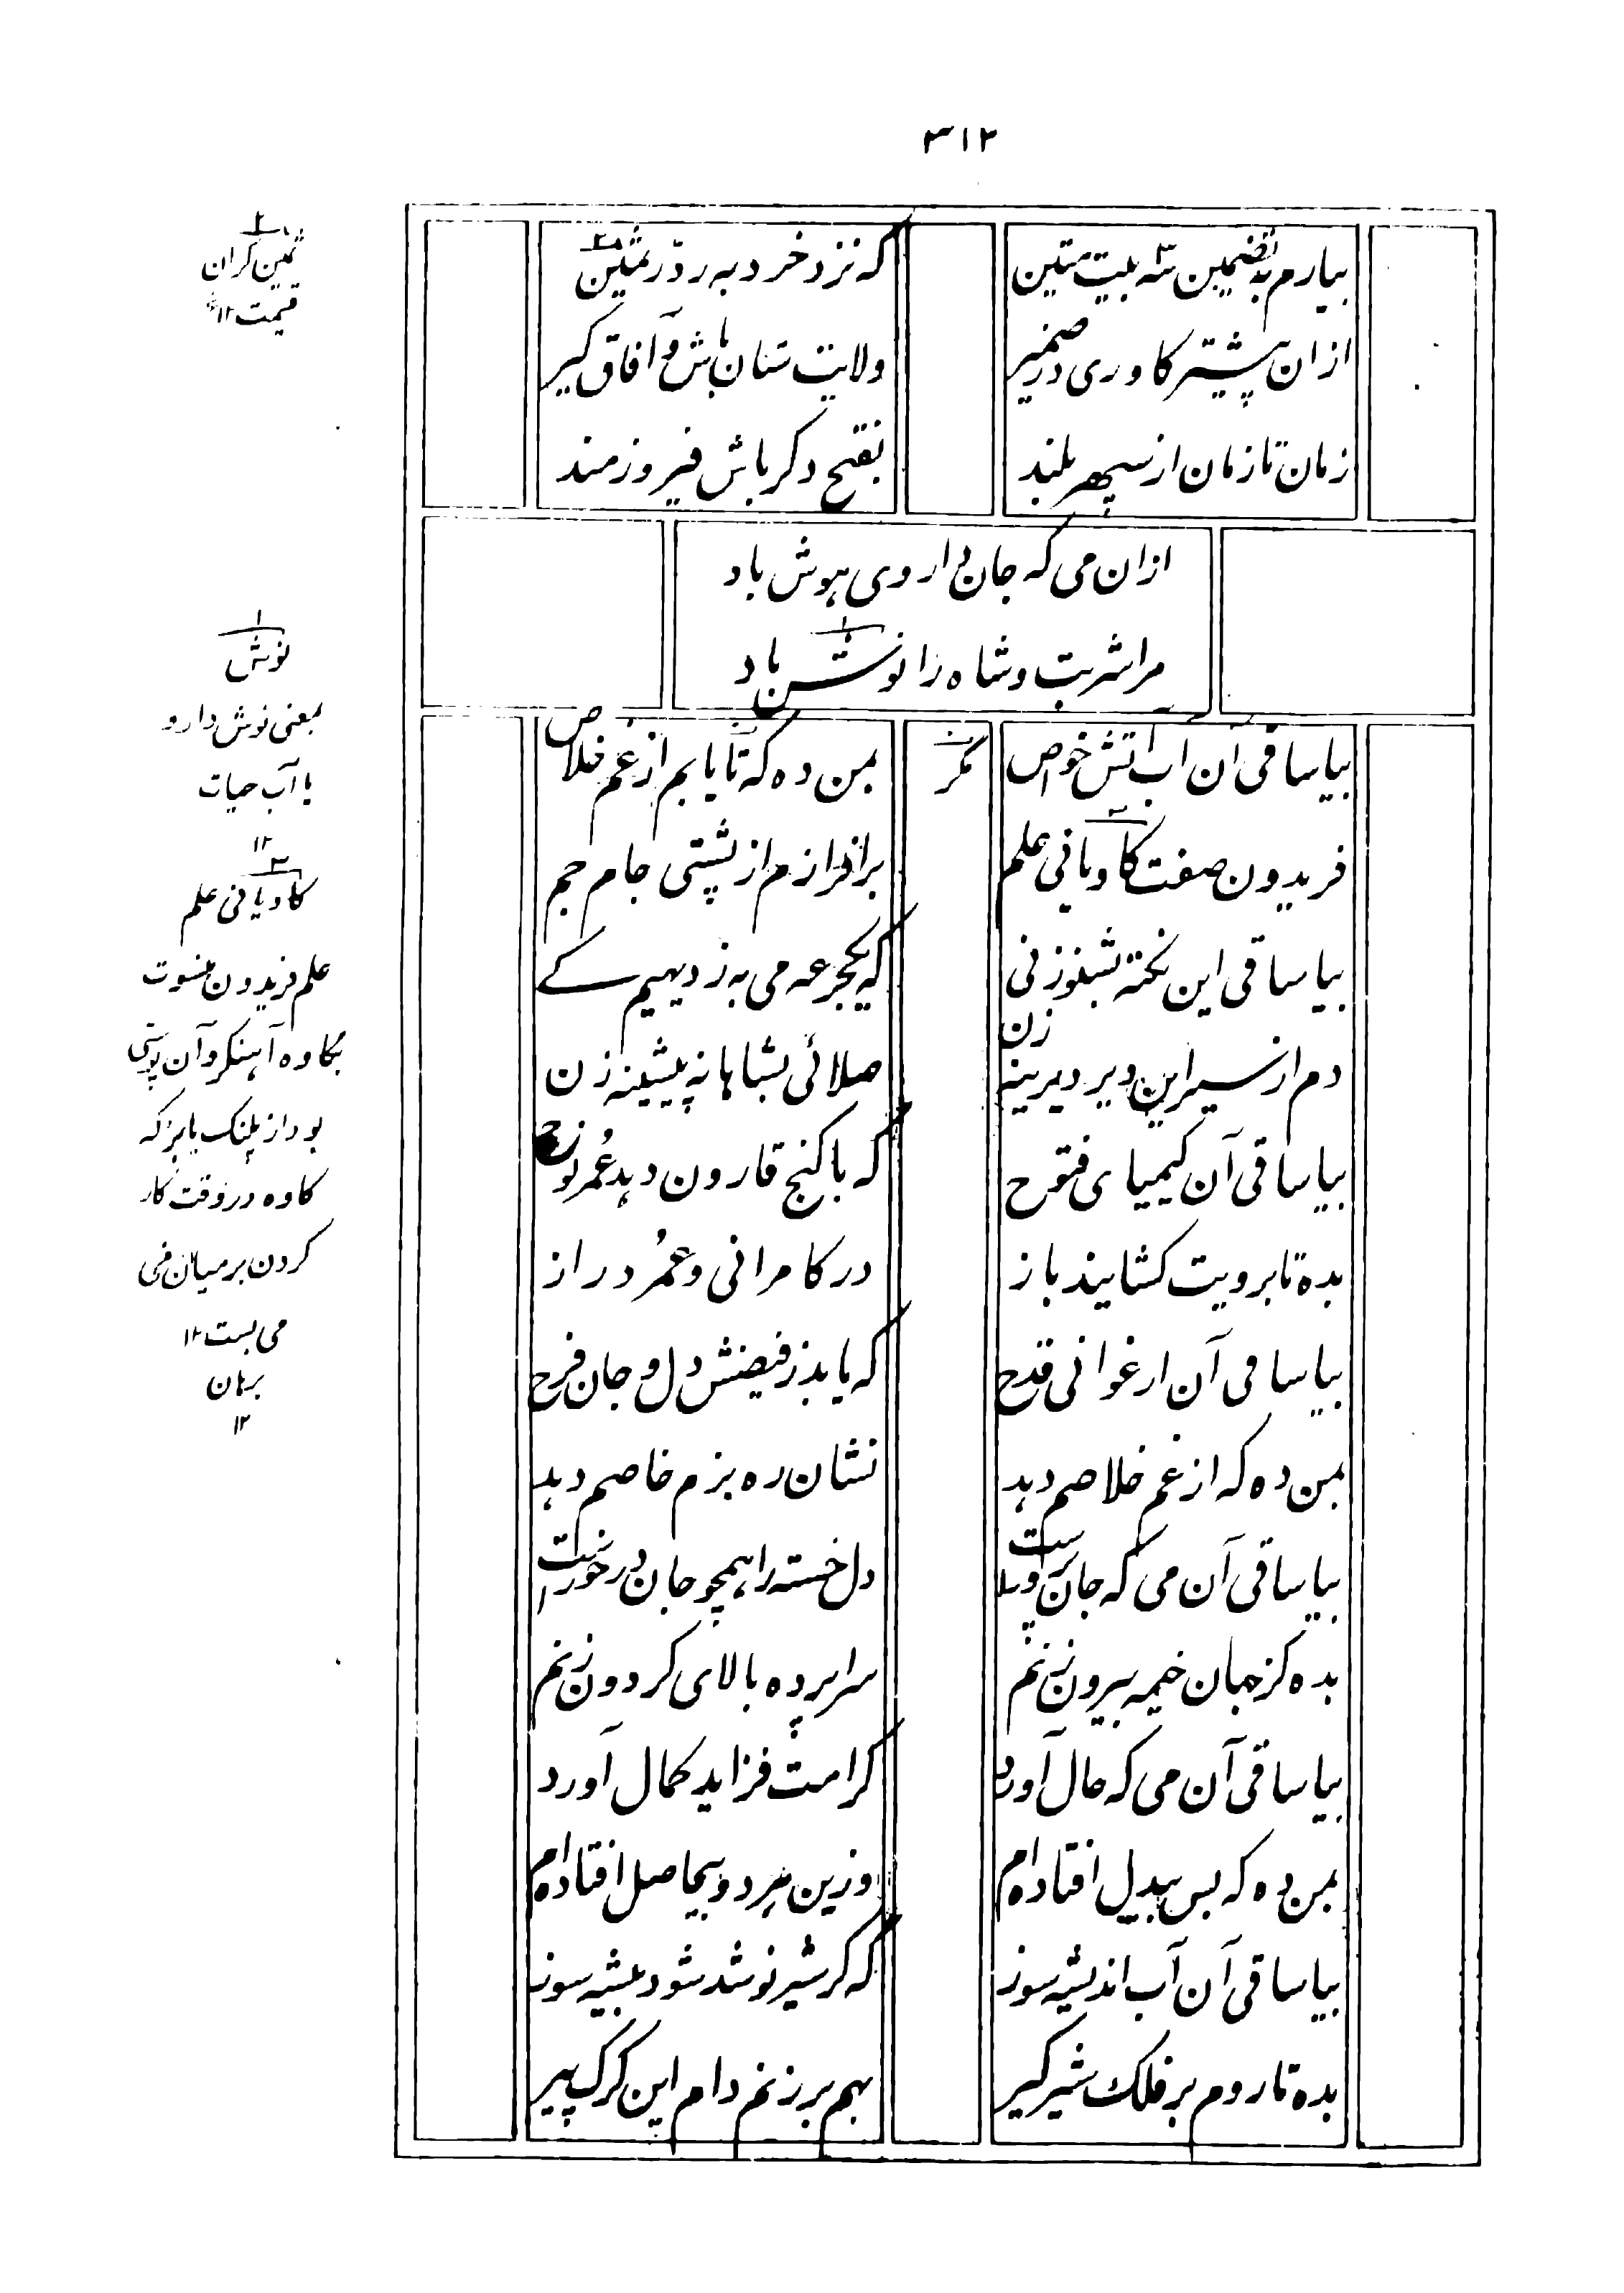 ۳۱۲
بیارم به تضمین سه بیت متین
که نزد خرد به ز دّر ثمین
ازان پیشتر کاوری در ضمیر
ولایت ستان باش و آفاق گیر
زمان تا زمان از سپهر بلند
بفتح دگر باش فیروزمند
ازان می که جان داروی هوش باد
مرا شربت و شاه را نوش باد
بیا ساقی آن آب آتش خواص
بمن ده که تا یابم از غم خلاص
فریدون صفت کاویانی علم
برافرازم از پشتی جام جم
بیا ساقی این نکته بشنو ز نی
که یکجرعه می به ز دیهیم کے
دم از سیر این دیر دیرینه زن
صلائی بشاهانِ پیشینه زن
بیا ساقی آن کیمیای فتوح
که با گنج قارون دهد عُمر نوح
بده تا برویت گشایند باز
در کامرانی و عُمر دراز
بیا ساقی آن ارغوانی قدح
که یابد ز فیضش دل و جان فرح
بمن ده که از غم خلاصم دهد
نشان ره بزم خاصم دهد
بیا ساقی آن می که جان پرورست
دل خسته را همچو جان درخورست
بده کز جهان خیمه بیرون زنم
سراپرده بالای گردون زنم
بیا ساقی آن می که حال آورد
کرامت فزاید کمال آورد
بمن ده که بس بیدل افتاده‌ام
وزین هر دو بیحاصل افتاده‌ام
بیا ساقی آن آب اندیشه سوز
که گر شیر نوشد شود بیشه سوز
بده تا روم بر فلک شیر گیر
بهم برزنم دام این گرگ پیر
۲
ثمین گران
قیمت ۱۲
۱
نوش
بمعنی نوش دارو
یا آب حیات
۱۲
۳
کاویانی علم
علم فریدون منسوب
بکاوه آهنگر و آن پوستی
بود از پلنگ یا بز که
کاوه در وقت کار
کردن بر میان
می بست ۱۲
برهان
۱۲